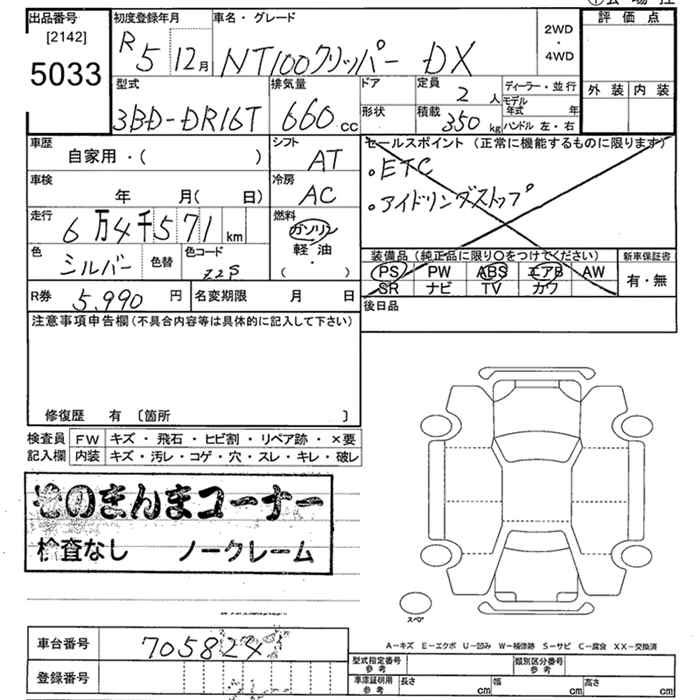 出品番号 初度登録年月 車名・グレード 評価点
[2142]
5033
R 5 12月 NT100クリッパー DX 2WD・4WD
型式 排気量 ドア 定員 ディーラー・並行 外装 内装
3BD-DR16T 660cc 2人 モデル年式 年
形状 積載 350kg ハンドル 左・右
車歴 シフト セールスポイント (正常に機能するものに限ります)
自家用・( ) AT ・ETC
車検 冷房 ・アイドリングストップ
年 月( 日) AC
走行 燃料
6万4千571km ガソリン
軽油
・
( )
色 色替 色コード 装備品 (純正品に限り○をつけてください) 新車保証書
シルバー PS PW ABS エアB AW 有・無
SR ナビ TV カワ
R券 5,990円 名変期限 月 日 後日品
注意事項申告欄(不具合内容等は具体的に記入して下さい)
修復歴 有 〔箇所 〕
検査員 FW キズ・飛石・ヒビ割・リペア跡・×要
記入欄 内装 キズ・汚レ・コゲ・穴・スレ・キレ・破レ
そのまんまコーナー
検査なし ノークレーム
スペア
車台番号 705824
A-キズ E-エクボ U-凹み W-補修跡 S-サビ C-腐食 XX-交換済
登録番号 型式指定番号 参考 類別区分番号 参考
車庫証明用 参考 長さ cm 幅 cm 高さ cm